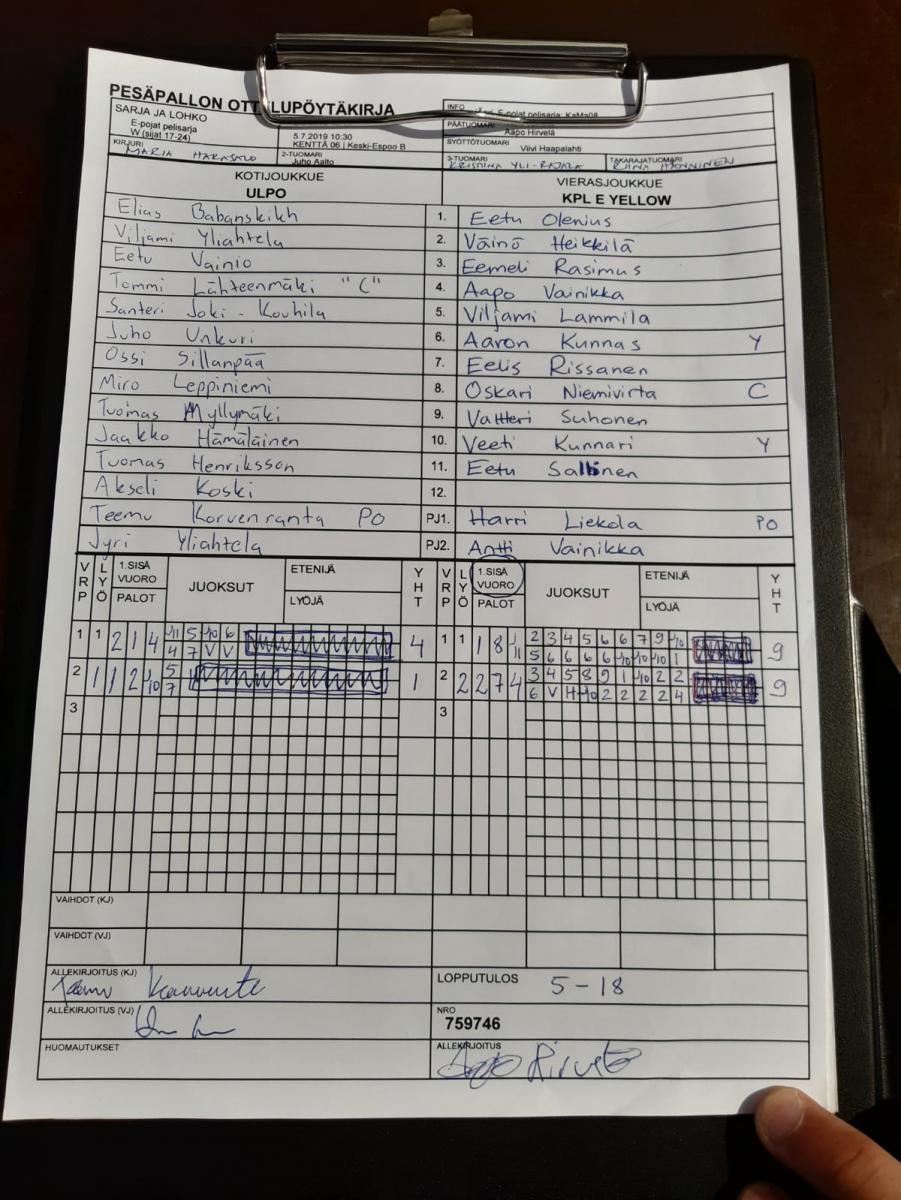 PESÄPALLON OTTELUPÖYTÄKIRJA
SARJA JA LOHKO
E-pojat pelisarja
W (sijat 17-24)
5.7.2019 10:30
KENTTÄ 06 | Keski-Espoo B
INFO
E-pojat pelisarja: KaMa08
PÄÄTUOMARI
Aapo Hirvelä
SYÖTTÖTUOMARI
Viivi Haapalahti
KIRJURI
MARIA
2-TUOMARI
Juho Aalto
3-TUOMARI
KRISTIINA YLI-RAJALA
TAKARAJATUOMARI
KOTIJOUKKUE
ULPO
VIERASJOUKKUE
KPL E YELLOW
Elias Babanskikh 1. Eetu Olenius
Viljami Yliahtela 2. Väinö Heikkilä
Eetu Vainio 3. Eemeli Rasimus
Tommi Lähteenmäki "C" 4. Aapo Vainikka
Santeri Joki-Kouhila 5. Viljami Lammila
Juho Unkuri 6. Aaron Kunnas Y
Ossi Sillanpää 7. Eelis Rissanen
Miro Leppiniemi 8. Oskari Niemivirta C
Tuomas Myllymäki 9. Valtteri Suhonen
Jaakko Hämäläinen 10. Veeti Kunnari Y
Tuomas Henriksson 11. Eetu Sallinen
Akseli Koski 12.
Teemu Korvenranta PO PJ1. Harri Liekola PO
Jyri Yliahtela PJ2. Antti Vainikka
VRP LYÖ 1.SISÄ VUORO PALOT JUOKSUT ETENIJÄ LYÖJÄ YHT VRP LYÖ 1.SISÄ VUORO PALOT JUOKSUT ETENIJÄ LYÖJÄ YHT
1 1 2 1 4 11 5 10 6 4 1 1 1 8 11 2 3 4 5 6 6 7 9 10 9
4 7 V V 5 6 6 6 6 10 10 10 1
2 1 1 2 10 5 1 2 2 2 7 4 3 4 5 8 9 1 10 2 2 9
7 1 6 V H 10 2 2 2 2 4
3 3
VAIHDOT (KJ)
VAIHDOT (VJ)
ALLEKIRJOITUS (KJ)
LOPPUTULOS 5-18
ALLEKIRJOITUS (VJ)
NRO
759746
HUOMAUTUKSET
ALLEKIRJOITUS